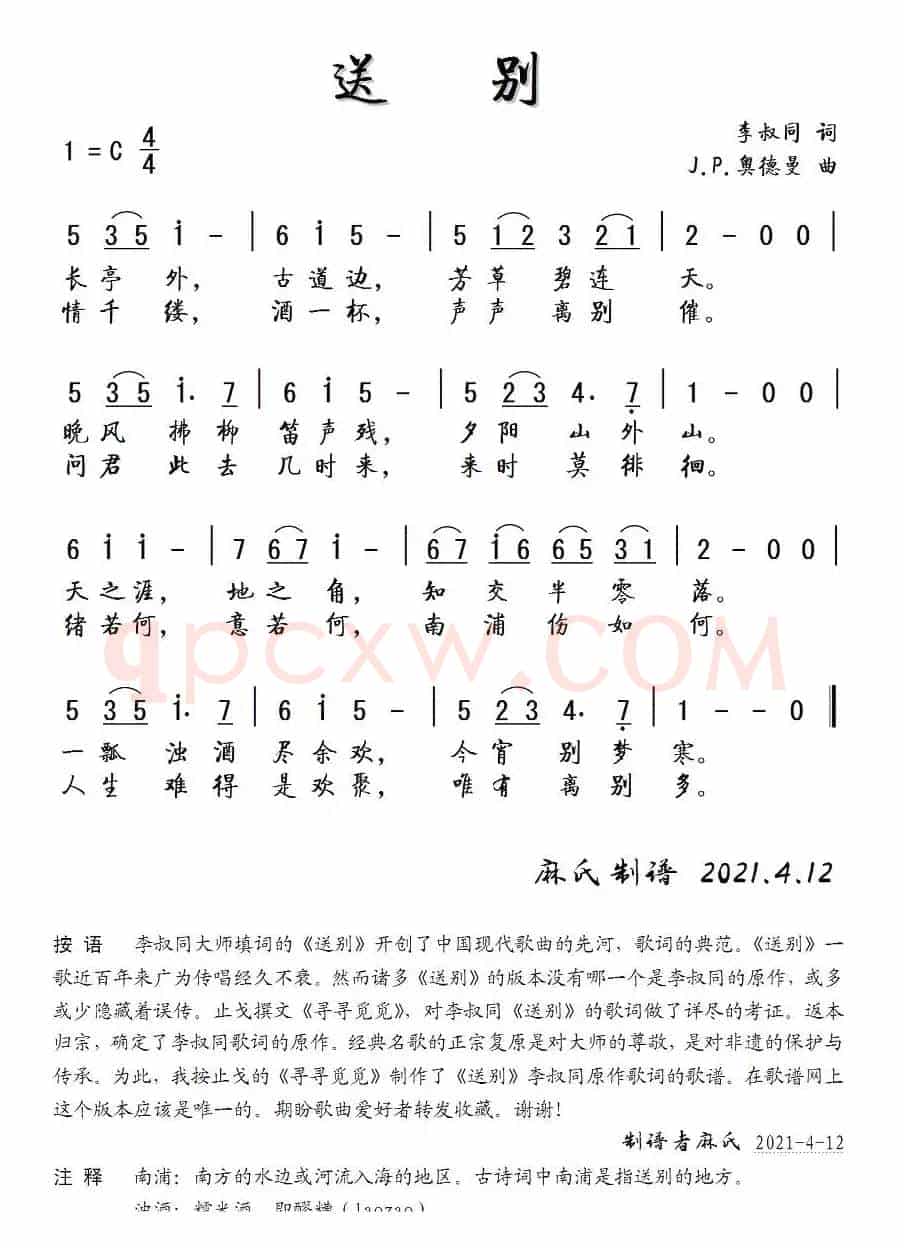 送 别
1=C 4/4
李叔同 词
J.P.奥德曼 曲
5 3 5 i - | 6 i 5 - | 5 1 2 3 2 1 | 2 - 0 0 |
长亭 外， 古道边， 芳草 碧连 天。
情千 缕， 酒一杯， 声声 离别 催。
5 3 5 i. 7 | 6 i 5 - | 5 2 3 4. 7̣ | 1 - 0 0 |
晚风 拂柳 笛声残， 夕阳 山外山。
问君 此去 几时来， 来时 莫徘徊。
6 i i - | 7 6 7 i - | 6 7 i 6 6 5 3 1 | 2 - 0 0 |
天之涯， 地之 角， 知 交 半 零 落。
绪若何， 意若 何， 南 浦 伤 如 何。
qpcxw.COM
5 3 5 i. 7 | 6 i 5 - | 5 2 3 4. 7̣ | 1 - - 0 ‖
一瓢 浊酒 尽余欢， 今宵 别梦寒。
人生 难得 是欢聚， 唯有 离别多。
麻氏制谱 2021.4.12
按语 李叔同大师填词的《送别》开创了中国现代歌曲的先河，歌词的典范。《送别》一
歌近百年来广为传唱经久不衰。然而诸多《送别》的版本没有哪一个是李叔同的原作，或多
或少隐藏着误传。止戈撰文《寻寻觅觅》，对李叔同《送别》的歌词做了详尽的考证。返本
归宗，确定了李叔同歌词的原作。经典名歌的正宗复原是对大师的尊敬，是对非遗的保护与
传承。为此，我按止戈的《寻寻觅觅》制作了《送别》李叔同原作歌词的歌谱。在歌谱网上
这个版本应该是唯一的。期盼歌曲爱好者转发收藏。谢谢!
制谱者麻氏 2021-4-12
注释 南浦：南方的水边或河流入海的地区。古诗词中南浦是指送别的地方。
浊酒：糯米酒，即醪糟（laozao）